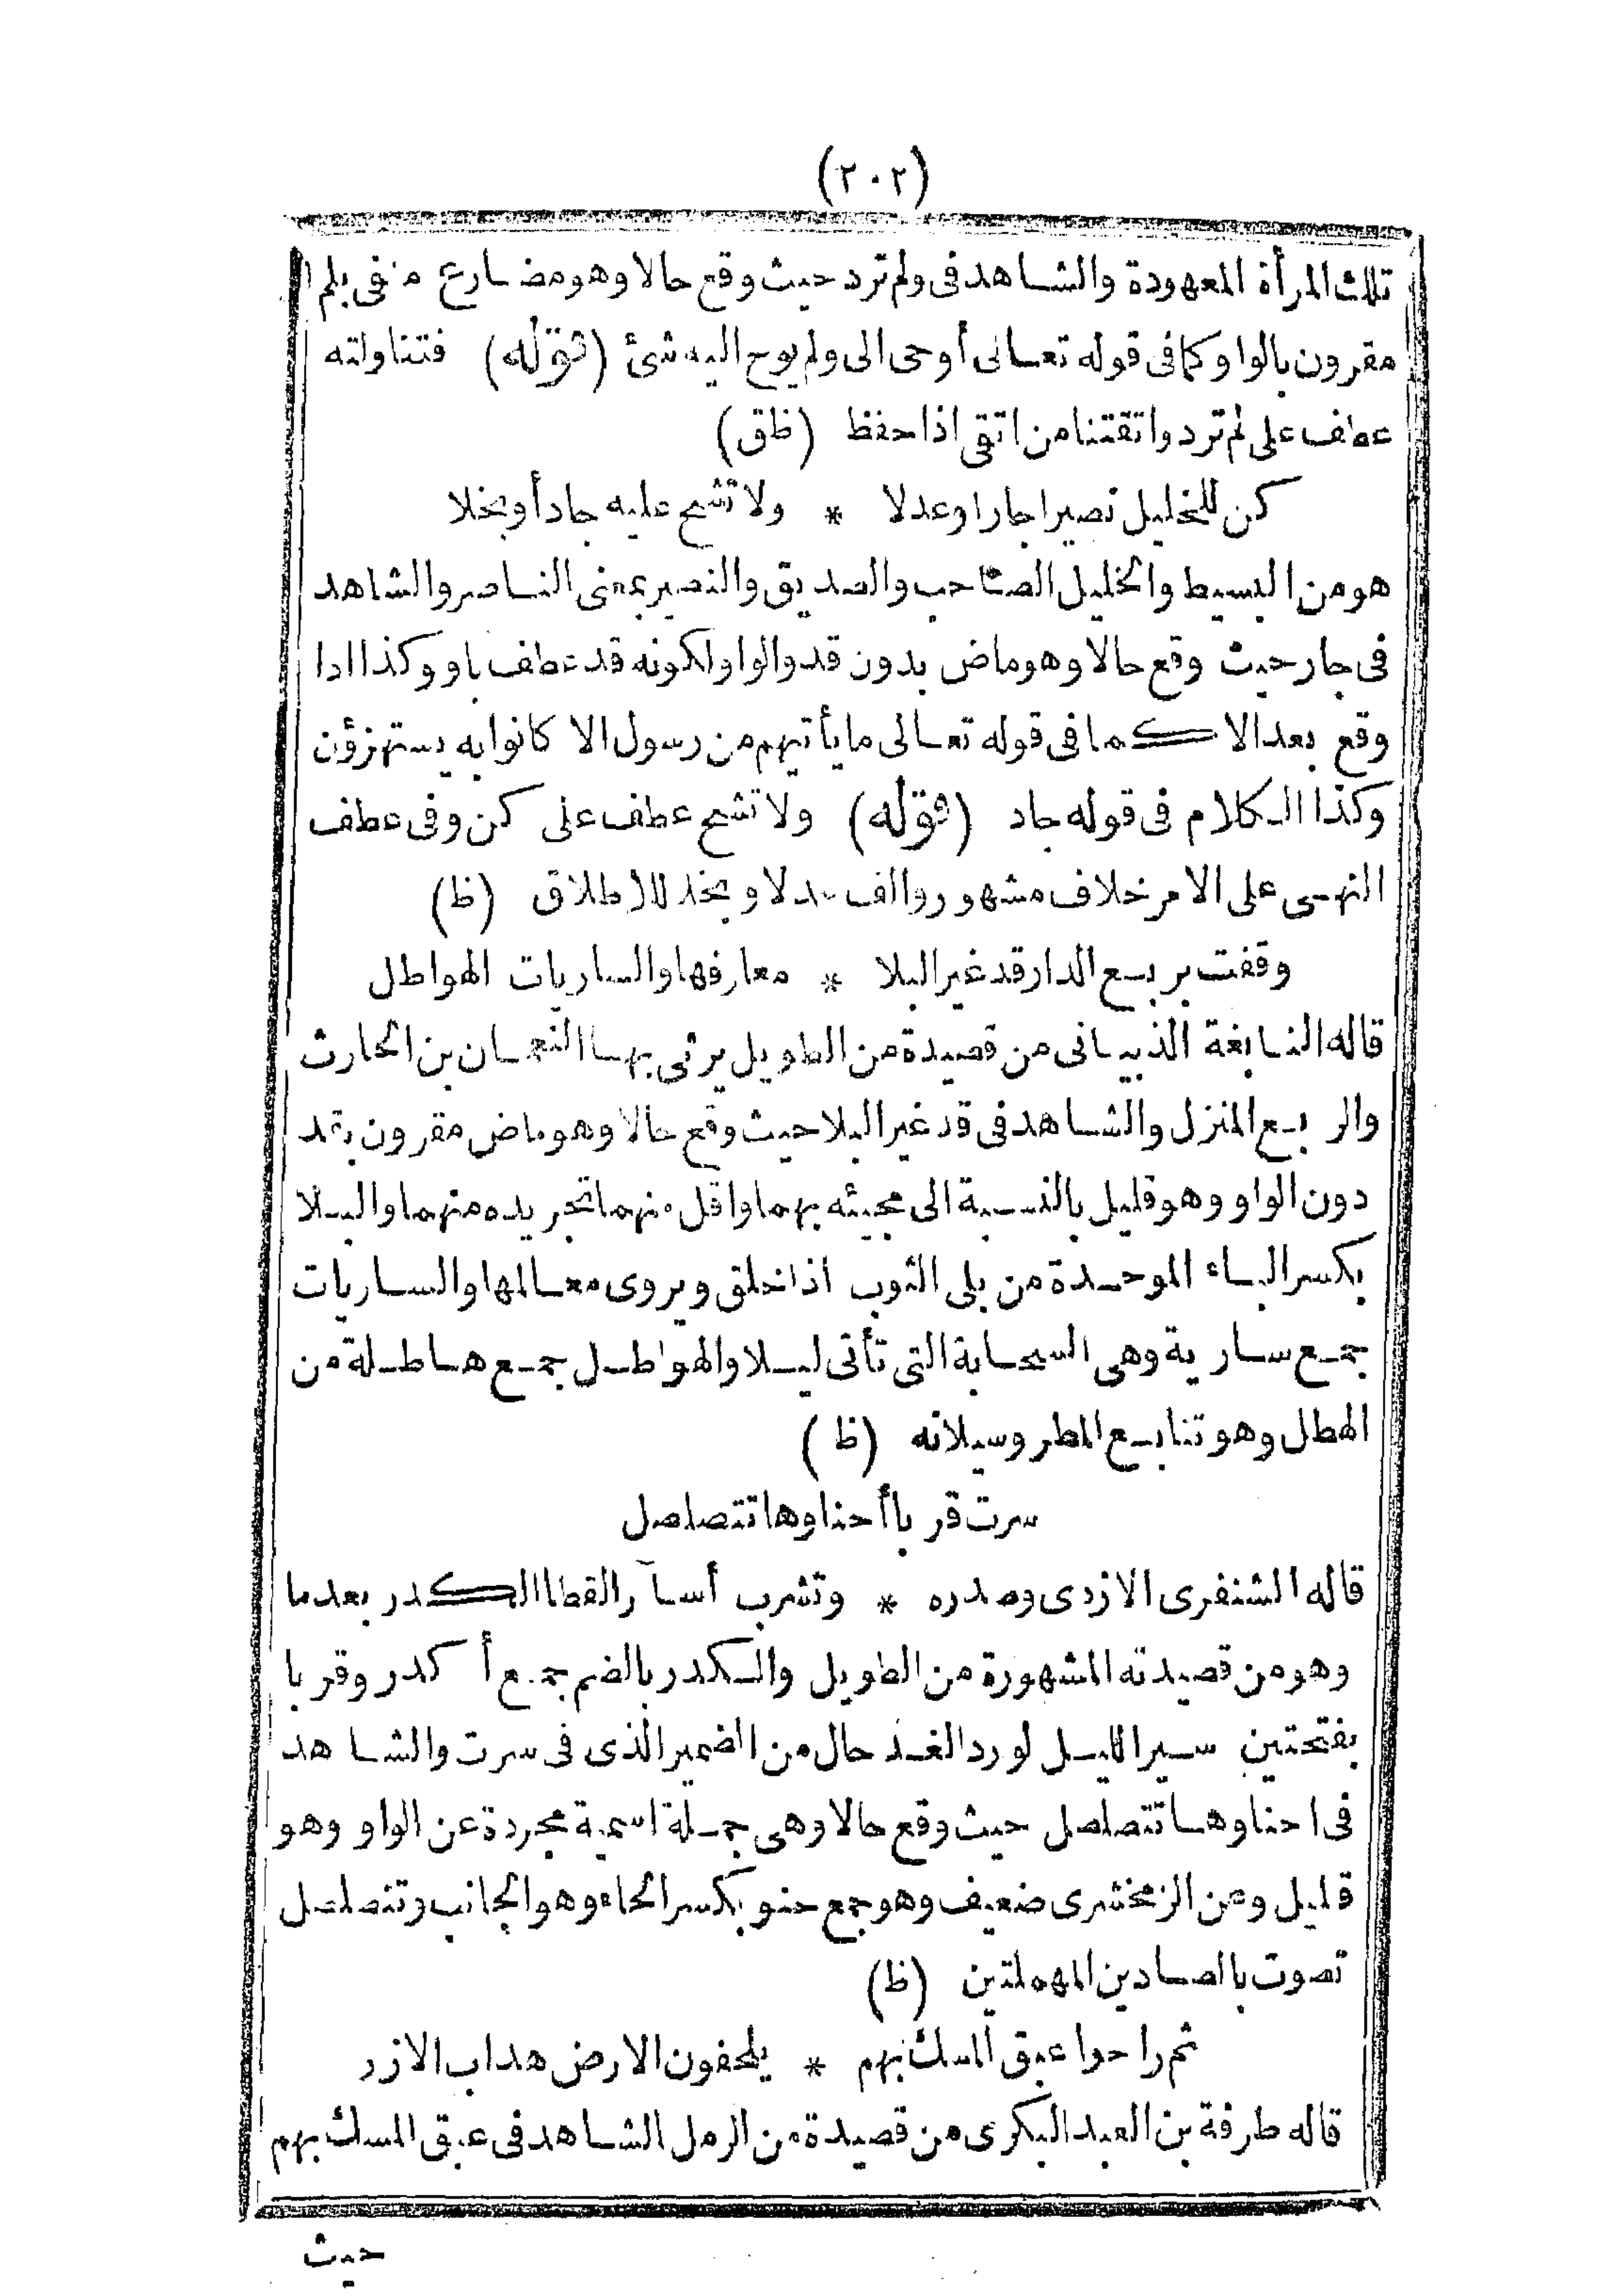 (٢٠٢)
تلك المرأة المعهودة والشاهد فى ولم ترد حيث وقع حالا وهو مضارع منفى بلم
مقرون بالواو كما فى قوله تعالى أوحى الى ولم يوح اليه شئ (قوله) فتناولته
عطف على لم ترد واتقتنا من اتقى اذا حفظ (ظق)
كن للخليل نصيرا جارا وعدلا * ولا تشح عليه جاد أو بخلا
هو من البسيط والخليل الصاحب والصديق والنصير بمعنى الناصر والشاهد
فى جار حيث وقع حالا وهو ماض بدون قد والواو لكونه قد عطف باو وكذا اذا
وقع بعد الا كما فى قوله تعالى ما يأتيهم من رسول الا كانوا به يستهزؤن
وكذا الكلام فى قوله جاد (قوله) ولا تشح عطف على كن وفى عطف
النهى على الامر خلاف مشهور وألف عدلا وبخلا للاطلاق (ظ)
وقفت بربع الدار قد غير البلا * معارفها والساريات الهواطل
قاله النابغة الذبيانى من قصيدة من الطويل يرثى بها النعمان بن الحارث
والربع المنزل والشاهد فى قد غير البلا حيث وقع حالا وهو ماض مقرون بقد
دون الواو وهو قليل بالنسبة الى مجيئه بهما واقل منهما تجريده منهما والبلا
بكسر الباء الموحدة من بلى الثوب اذا خلق ويروى معالمها والساريات
جمع سارية وهى السحابة التى تأتى ليلا والهواطل جمع هاطلة من
الهطل وهو تتابع المطر وسيلانه (ظ)
سرت قربا أحناوها تتصلصل
قاله الشنفرى الازدى وصدره * وتشرب أسآر القطا الكدر بعدما
وهو من قصيدته المشهورة من الطويل والكدر بالضم جمع أكدر وقربا
بفتحتين سير الليل لورد الغد حال من الضمير الذى فى سرت والشاهد
فى احناوها تتصلصل حيث وقع حالا وهى جملة اسمية مجردة عن الواو وهو
قليل وعن الزمخشرى ضعيف وهو جمع حنو بكسر الحاء وهو الجانب وتتصلصل
تصوت بالصادين المهملتين (ظ)
ثم راحوا عبق المسك بهم * يلحفون الارض هداب الازر
قاله طرفة بن العبد البكرى من قصيدة من الرمل الشاهد فى عبق المسك بهم
حيث